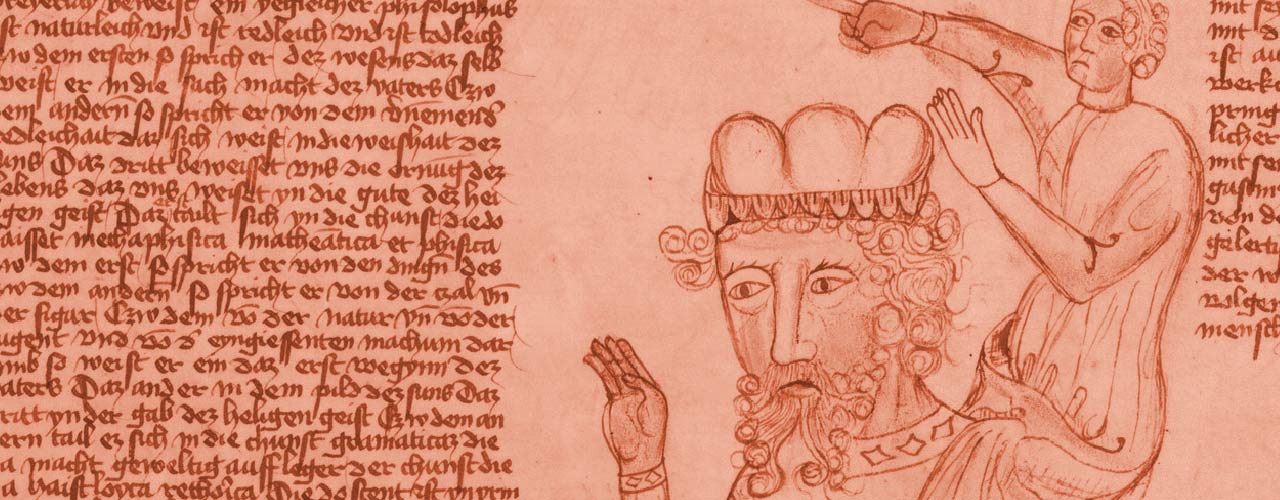 beweist ein yegleicher philosophus
ist naturleich vnd ist redleich vnd ist todleich
zw dem ersten so sprich er dez wesens daz selb
weist er in die sach macht dez vaters Czw
dem andern so spricht er von dem vnemens
redleichait daz sich weist in die weishait dez
suns Daz dritt beweisset vns die ornug dez
lebens daz vns weiset yn die gute dez hei
gen geist Daz tailt sich yn die chunst die do
haisset methaphisica mathematica et phisica
zw dem erst so spricht er von den dingn des
zw dem andern so spricht er von der czal vn
der figur Czw dem vo der natur yn vo der
vnd vo d eyngiessenten machum dar
vmb so weist er ein daz erst wegynn dez
vaters Daz ander in dem pild dez suns Daz
dritt yn der gab dez heligen geist Czw dem an
dern tail ez sich in die chunst gramatica die
da macht geweltig auffleger der chunst die
da haist loyca rethorica Die do stent ist yn yrm
mit se
mit d
ist au
werke
pring
licher
mit se
von de
gelert
der w
volge
mensch